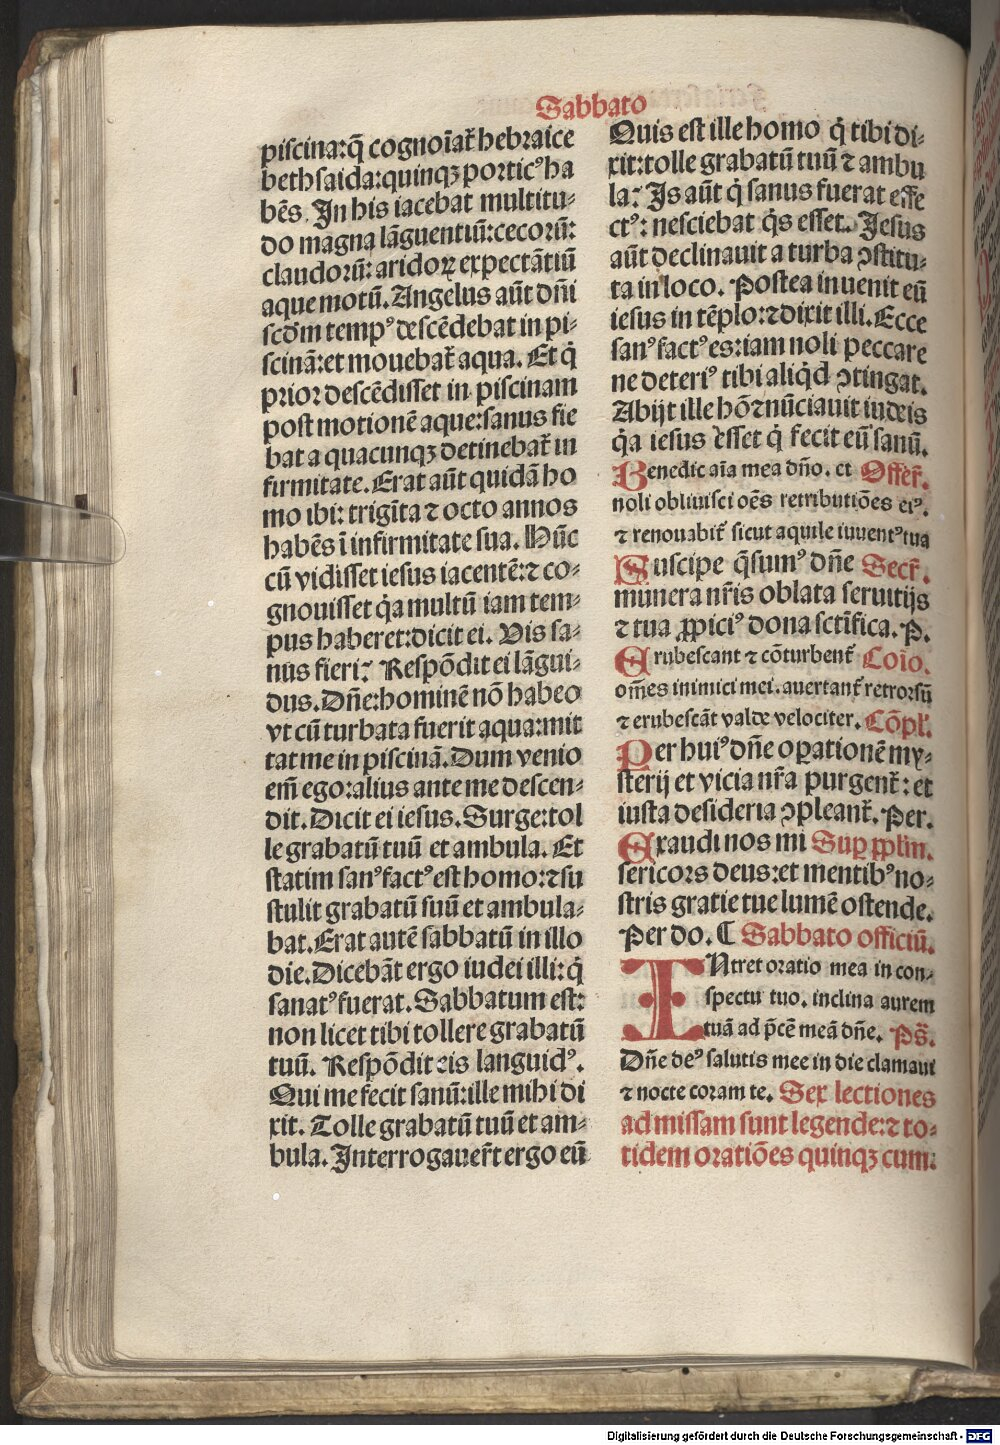 Sabbato
piscina:q̄ cognoīat᷑ hebraice
bethsaida:quinqꝫ porticꝰ ha
bēs. In his iacebat multitu⸗
do magna lāguentiū:cecorū:
claudorū: aridoꝝ expectātiū
aque motū. Angelus aūt dn̄i
scd̄m tempꝰ descēdebat in pi⸗
scinā:et mouebat᷑ aqua. Et q̇
prior descēdisset in piscinam
post motionē aque:sanus fie
bat a quacunqꝫ detinebat᷑ in
firmitate. Erat aūt quidā ho
mo ibi: trigīta ⁊ octo annos
habēs ī infirmitate sua. Hūc
cū vidisset iesus iacentē:⁊ co⸗
gnouisset q̇a multū iam tem⸗
pus haberet:dicit ei. Vis sa⸗
nus fieri? Respōdit ei lāgui⸗
dus. Dn̄e:hominē nō habeo
vt cū turbata fuerit aqua:mit
tat me in piscinā. Dum venio
em̄ ego:alius ante me descen⸗
dit. Dicit ei iesus. Surge:tol
le grabatū tuū et ambula. Et
statim sanꝰ factꝰ est homo:⁊ su
stulit grabatū suū et ambula⸗
bat. Erat autē sabbatū in illo
die. Dicebāt ergo iudei illi: q̇
sanatꝰ fuerat. Sabbatum est:
non licet tibi tollere grabatū
tuū. Respōdit eis languidꝰ.
Qui me fecit sanū:ille mihi di
xit. Tolle grabatū tuū et am⸗
bula. Interrogauer᷑t ergo eū
Quis est ille homo q̇ tibi di⸗
xit:tolle grabatū tuū ⁊ ambu
la? Is aūt q̇ sanus fuerat effe
ctꝰ: nesciebat q̇s esset. Jesus
aūt declinauit a turba ↄstitu⸗
ta in loco. Postea inuenit eū
iesus in tēplo:⁊ dixit illi. Ecce
sanꝰ factꝰ es:iam noli peccare
ne deteriꝰ tibi aliq̇d ↄtingat.
Abijt ille hō ⁊ nūciauit iudeis
q̇a iesus esset q̇ fecit eū sanū.
Benedic aīa mea dn̄o. et Offer᷑.
noli obliuisci oēs retributiōes eiꝰ.
⁊ renouabit᷑ sicut aquile iuuentꝰ tua
Suscipe q̄sumꝰ dn̄e Secr᷑.
munera nr̄is oblata seruitijs
⁊ tua ꝓpiciꝰ dona sctīfica. P.
Erubescant ⁊ cōturbent᷑ Coīo.
om̄es inimici mei. auertant᷑ retrorsū
⁊ erubescāt valde velociter. Cōpl᷑.
Per huiꝰ dn̄e oꝑationē my⸗
sterij et vicia nr̄a purgent᷑: et
iusta desideria ↄpleant᷑. Per.
Exaudi nos mi Suꝑ ꝓplm̄.
sericors deus:et mentibꝰ no⸗
stris gratie tue lumē ostende.
Per do. ¶ Sabbato officiū.
INtret oratio mea in con⸗
spectu tuo. inclina aurem
tuā ad p̄cē meā dn̄e. Ps̄.
Dn̄e deꝰ salutis mee in die clamaui
⁊ nocte coram te. Sex lectiones
ad missam sunt legende:⁊ to⸗
tidem oratiōes quinqꝫ cum:
Digitalisierung gefördert durch die Deutsche Forschungsgemeinschaft - DFG